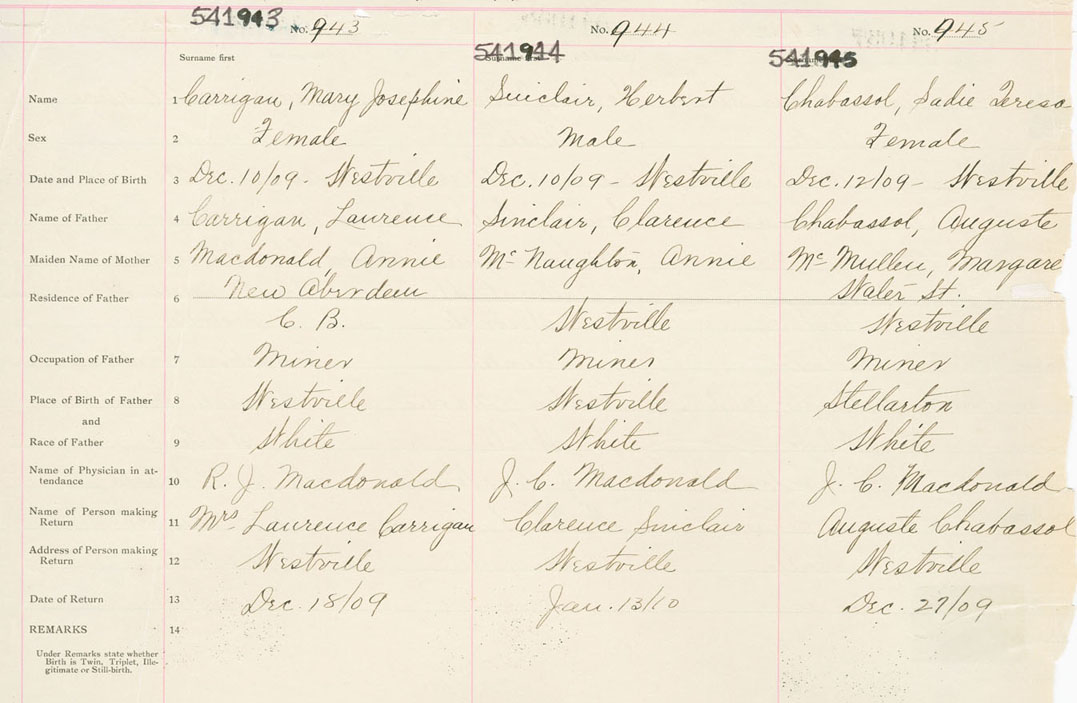 541943 No. 943 541944 No. 944 541945 No. 945
Surname first
Name 1 Carrigan, Mary Josephine Sinclair, Herbert Chabassol, Sadie Teresa
Sex 2 Female Male Female
Date and Place of Birth 3 Dec. 10/09 - Westville Dec. 10/09 - Westville Dec. 12/09 - Westville
Name of Father 4 Carrigan, Laurence Sinclair, Clarence Chabassol, Auguste
Maiden Name of Mother 5 Macdonald, Annie McNaughton, Annie McMullen, Margare
Residence of Father 6 New Aberdeen Water St.
C. B. Westville Westville
Occupation of Father 7 Miner Miner Miner
Place of Birth of Father 8 Westville Westville Stellarton
and
Race of Father 9 White White White
Name of Physician in at-
tendance 10 R. J. Macdonald J. C. Macdonald J. C. Macdonald
Name of Person making
Return 11 Mrs Laurence Carrigan Clarence Sinclair Auguste Chabassol
Address of Person making
Return 12 Westville Westville Westville
Date of Return 13 Dec. 18/09 Jan. 13/10 Dec. 27/09
REMARKS 14
Under Remarks state whether
Birth is Twin, Triplet, Ille-
gitimate or Still-birth.